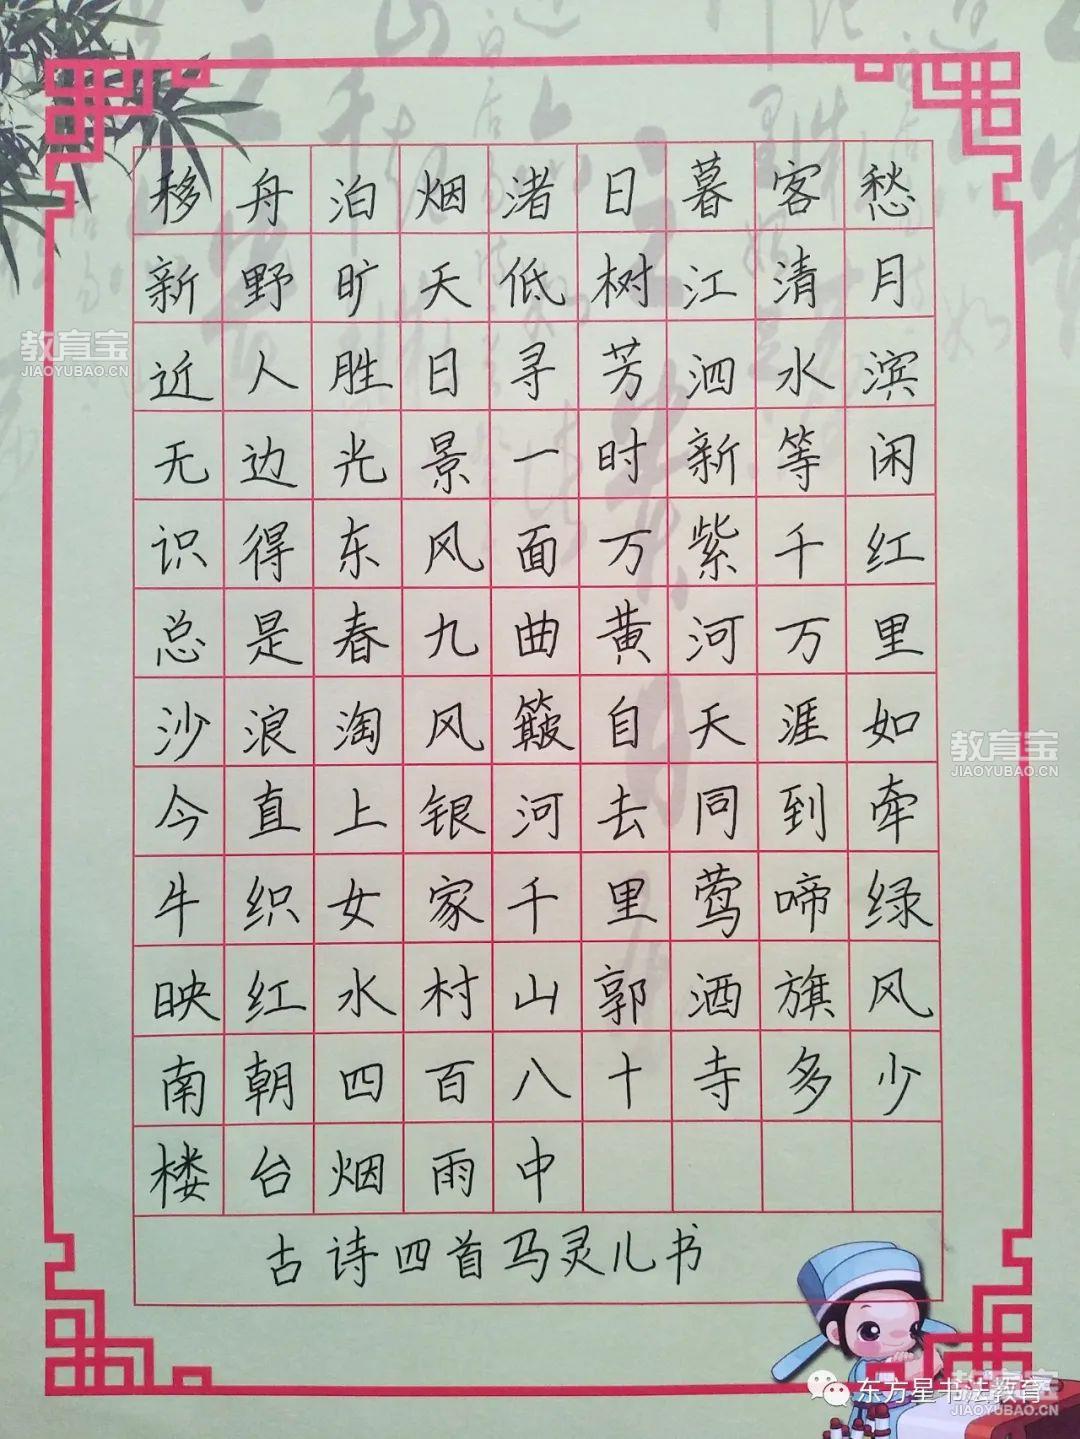 移舟泊烟渚日暮客愁
新野旷天低树江清月
近人胜日寻芳泗水滨
无边光景一时新等闲
识得东风面万紫千红
总是春九曲黄河万里
沙浪淘风簸自天涯如
今直上银河去同到牵
牛织女家千里莺啼绿
映红水村山郭酒旗风
南朝四百八十寺多少
楼台烟雨中
古诗四首马灵儿书
教育宝
JIAOYUBAO.CN
教育宝
JIAOYUBAO.CN
东方星书法教育
教育宝
JIAOYUBAO.CN